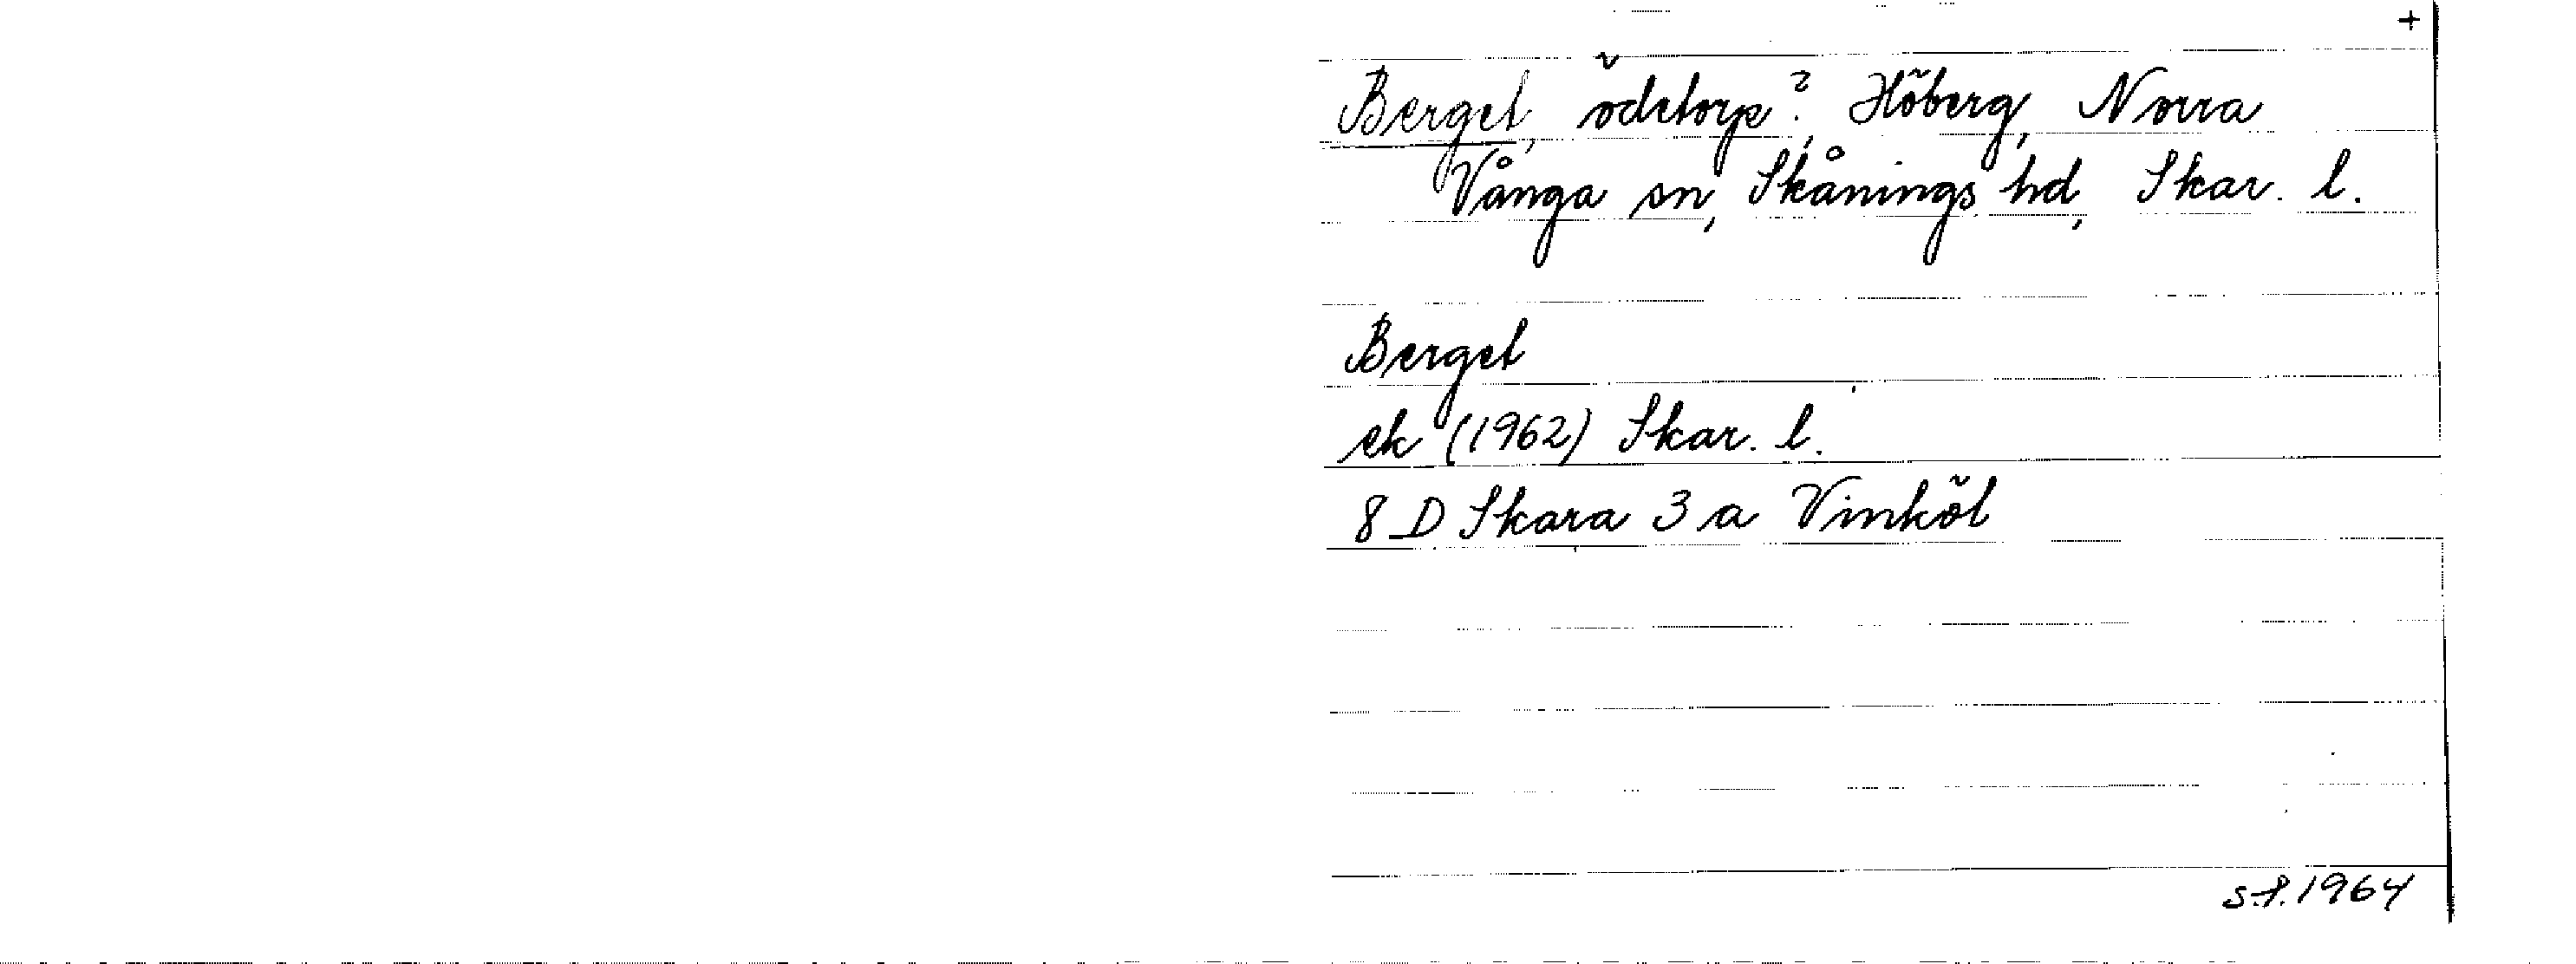 +
Berget, ödetorp?, Höberg, Norra
Vånga sn, Skånings hd, Skar. l.
Berget
ek (1962) Skar. l.
8 D Skara 3 a Vinköl
s.f. 1964